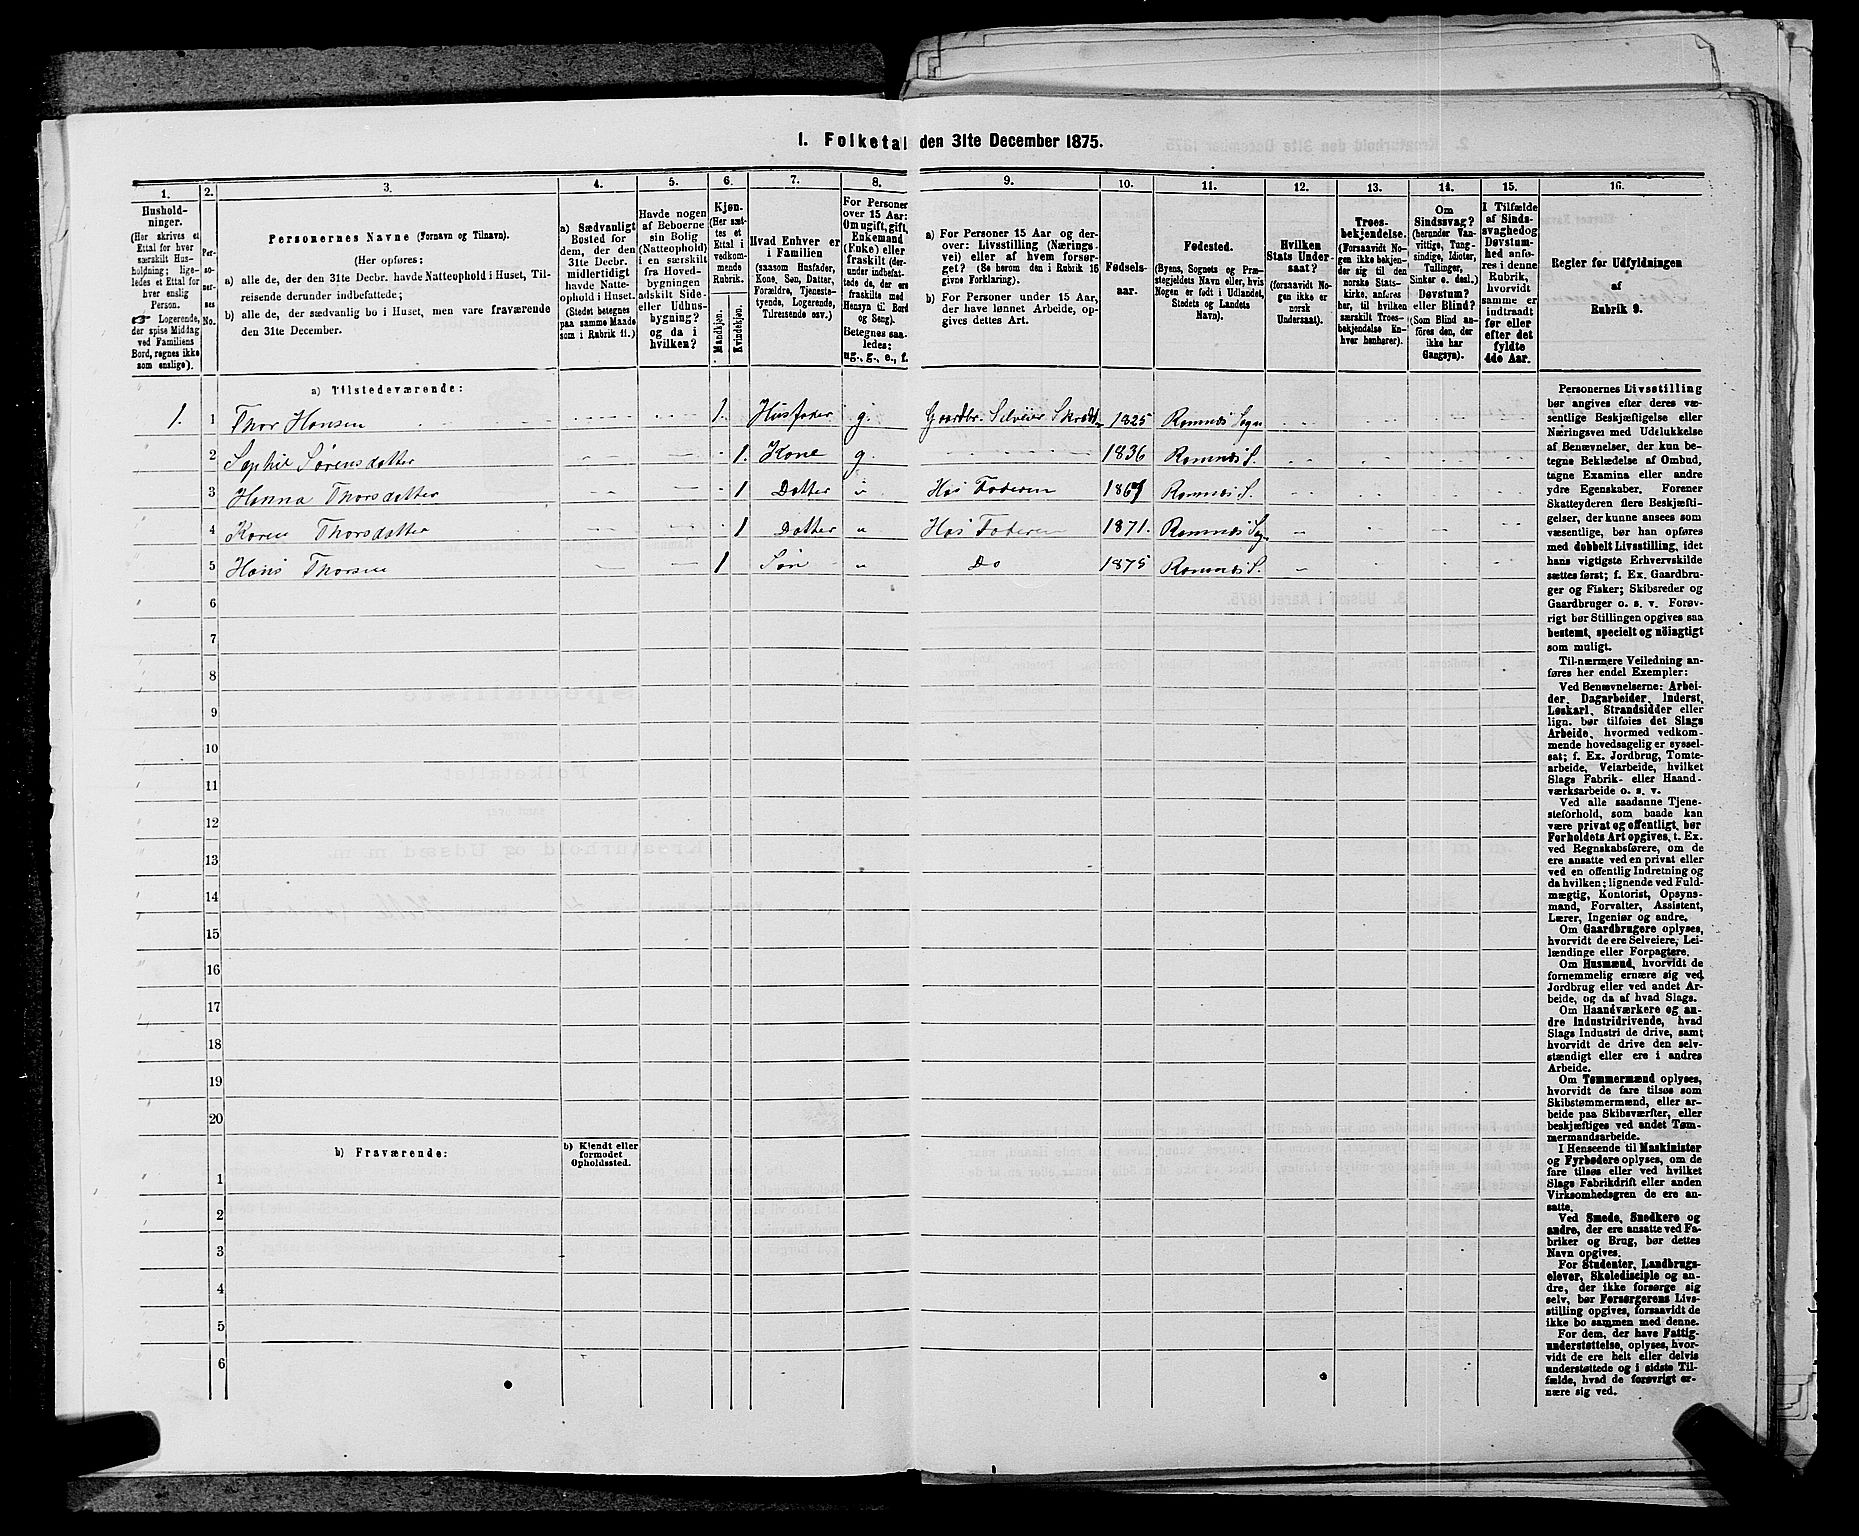 1. Folketal den 31te December 1875.
1.
2.
3.
4.
5.
6.
7.
8.
9.
10.
11.
12.
13.
14.
15.
16.
Hushold-
ninger.
(Her skrives et
Ettal for hver
særskilt Hus-
holdning; lige-
ledes et Ettal for
hver enslig
Person.
☞ Logerende,
der spise Middag
ved Familiens
Bord, regnes ikke
som enslige).
Per-
so-
ner-
nes
No.
Personernes Navne (Fornavn og Tilnavn).
(Her opføres:
a) alle de, der den 31te Decbr. havde Natteophold i Huset, Til-
reisende derunder indbefattede;
b) alle de, der sædvanlig bo i Huset, men vare fraværende
den 31te December.
a) Sædvanligt
Bosted for
dem, der den
31te Decbr.
midlertidigt
havde Natte-
ophold i Huset.
(Stedet betegnes
paa samme Maade
som i Rubrik 11.)
Havde nogen
af Beboerne
sin Bolig
(Natteophold)
i en særskilt
fra Hoved-
bygningen
adskilt Side-
eller Udhus-
bygning?
og da i
hvilken?
Kjøn.
(Her sæt-
tes et
Ettal i
vedkom-
mende
Rubrik.
Mandkjøn.
Kvindekjøn.
Hvad Enhver er
i Familien
(saasom Husfader,
Kone, Søn, Datter,
Forældre, Tjeneste-
tyende, Logerende,
Tilreisende osv.)
For Personer
over 15 Aar:
Om ugift, gift,
Enkemand
(Enke) eller
fraskilt (der-
under indbefat-
tede de, der ere
fraskilte med
Hensyn til Bord
og Seng).
Betegnes saa-
ledes:
ug., g., e., f.
a) For Personer 15 Aar og der-
over: Livsstilling (Nærings-
vei) eller af hvem forsør-
get? (Se herom den i Rubrik 16
givne Forklaring).
b) For Personer under 15 Aar,
der have lønnet Arbeide, op-
gives dettes Art.
Fødsels-
aar.
Fødested.
(Byens, Sognets og Præ-
stegjeldets Navn eller, hvis
Nogen er født i Udlandet,
Stedets og Landets
Navn).
Hvilken
Stats Under-
saat?
(forsaavidt No-
gen ikke er
norsk
Undersaat).
Troes-
bekjendelse.
(Forsaavidt No-
gen ikke bekjen-
der sig til den
norske Stats-
kirke, anføres
her, til hvilken
særskilt Troes-
bekjendelse En-
hver henhører).
Om
Sindssvag?
(herunder Van-
vittige, Tung-
sindige, Idioter,
Tullinger,
Sinker o. desl.)
Døvstum?
eller Blind?
(Som Blind an-
føres den, der
ikke har
Gangsyn).
I Tilfælde
af Sinds-
svaghed og
Døvstum-
hed anfø-
res i denne
Rubrik,
hvorvidt
samme er
indtraadt
før eller
efter det
fyldte
4de Aar.
Regler for Udfyldningen
af
Rubrik 9.
a) Tilstedeværende:
1. 1 Thor Hansen 1. Husfader g. Gaardbr. Selveier 1825 Ramnæs Sogn
2 Sophie Sørensdatter 1. Kone g. 1836 Ramnæs S.
3 Hanna Thorsdatter 1 Datter " Hos Faderen Ramnæs S.
4 Karen Thorsdatter 1 Datter " Hos Faderen 1871. Ramnæs Sog
5 Hans Thorsen 1 Søn " Do 1875 Ramnæs S.
6
7
8
9
10
11
12
13
14
15
16
17
18
19
20
b) Fraværende:
b) Kjendt eller
formodet
Opholdssted.
1
2
3
4
5
6
Personernes Livsstilling
bør angives efter deres væ-
sentlige Beskjæftigelse eller
Næringsvei med Udelukkelse
af Benævnelser, der kun be-
tegne Beklædelse af Ombud,
tagne Examina eller andre
ydre Egenskaber. Forener
Skatteyderen flere Beskjæfti-
gelser, der kunne ansees som
væsentlige, bør han opføres
med dobbelt Livsstilling, idet
hans vigtigste Erhvervskilde
sættes først; f. Ex. Gaardbru-
ger og Fisker; Skibsreder og
Gaardbruger o. s. v. Forøv-
rigt bør Stillingen opgives saa
bestemt, specielt og nöiagtigt
som muligt.
Til nærmere Veiledning an-
føres her endel Exempler:
Ved Benævnelserne: Arbei-
der, Dagarbeider, Inderst,
Løskarl, Strandsidder eller
lign. bør tilføies det Slags
Arbeide, hvormed vedkom-
mende hovedsagelig er syssel-
sat; f. Ex. Jordbrug, Tomte-
arbeide, Veiarbeide, hvilket
Slags Fabrik- eller Haand-
værksarbeide o. s. v.
Ved alle saadanne Tjene-
steforhold, som baade kan
være privat og offentligt, bør
Forholdets Art opgives, t. Ex.
ved Regnskabsførere, om de
ere ansatte ved en privat eller
ved en offentlig Indretning og
da hvilken; lignende ved Fuld-
mægtig, Kontorist, Opsyns-
mand, Forvalter, Assistent,
Lærer, Ingeniør og andre.
Om Gaardbrugere oplyses,
hvorvidt de ere Selveiere, Lei-
lændinge eller Forpagtere.
Om Husmænd, hvorvidt de
fornemmelig ernære sig ved
Jordbrug eller ved andet Ar-
beide, og da af hvad Slags.
Om Haandværkere og an-
dre Industridrivende, hvad
Slags Industri de drive, samt
hvorvidt de drive den selv-
stændigt eller ere i andres
Arbeide.
Om Tømmermænd oplyses,
hvorvidt de fare tilsøs som
Skibstømmermænd, eller ar-
beide paa Skibsværfter, eller
beskjæftiges ved andet Tøm-
mermandsarbeide.
I Henseende til Maskinister
og Fyrbødere oplyses, om de
fare tilsøs eller ved hvilket
Slags Fabrikdrift eller anden
Virksomhedsgren de ere an-
satte.
Ved Smede, Snedkere og
andre, der ere ansatte ved Fa-
briker og Brug, bør dettes
Navn opgives.
For Studenter, Landbrugs-
elever, Skoledisciple og an-
dre, der ikke forsørge sig
selv, bør Forsørgerens Livs-
stilling opgives, forsaavidt de
ikke bo sammen med denne.
For dem, der have Fattig-
understøttelse, oplyses, hvor-
vidt de ere helt eller delvis
understøttede og i sidste Til-
fælde, hvad de forøvrigt er-
nære sig ved.